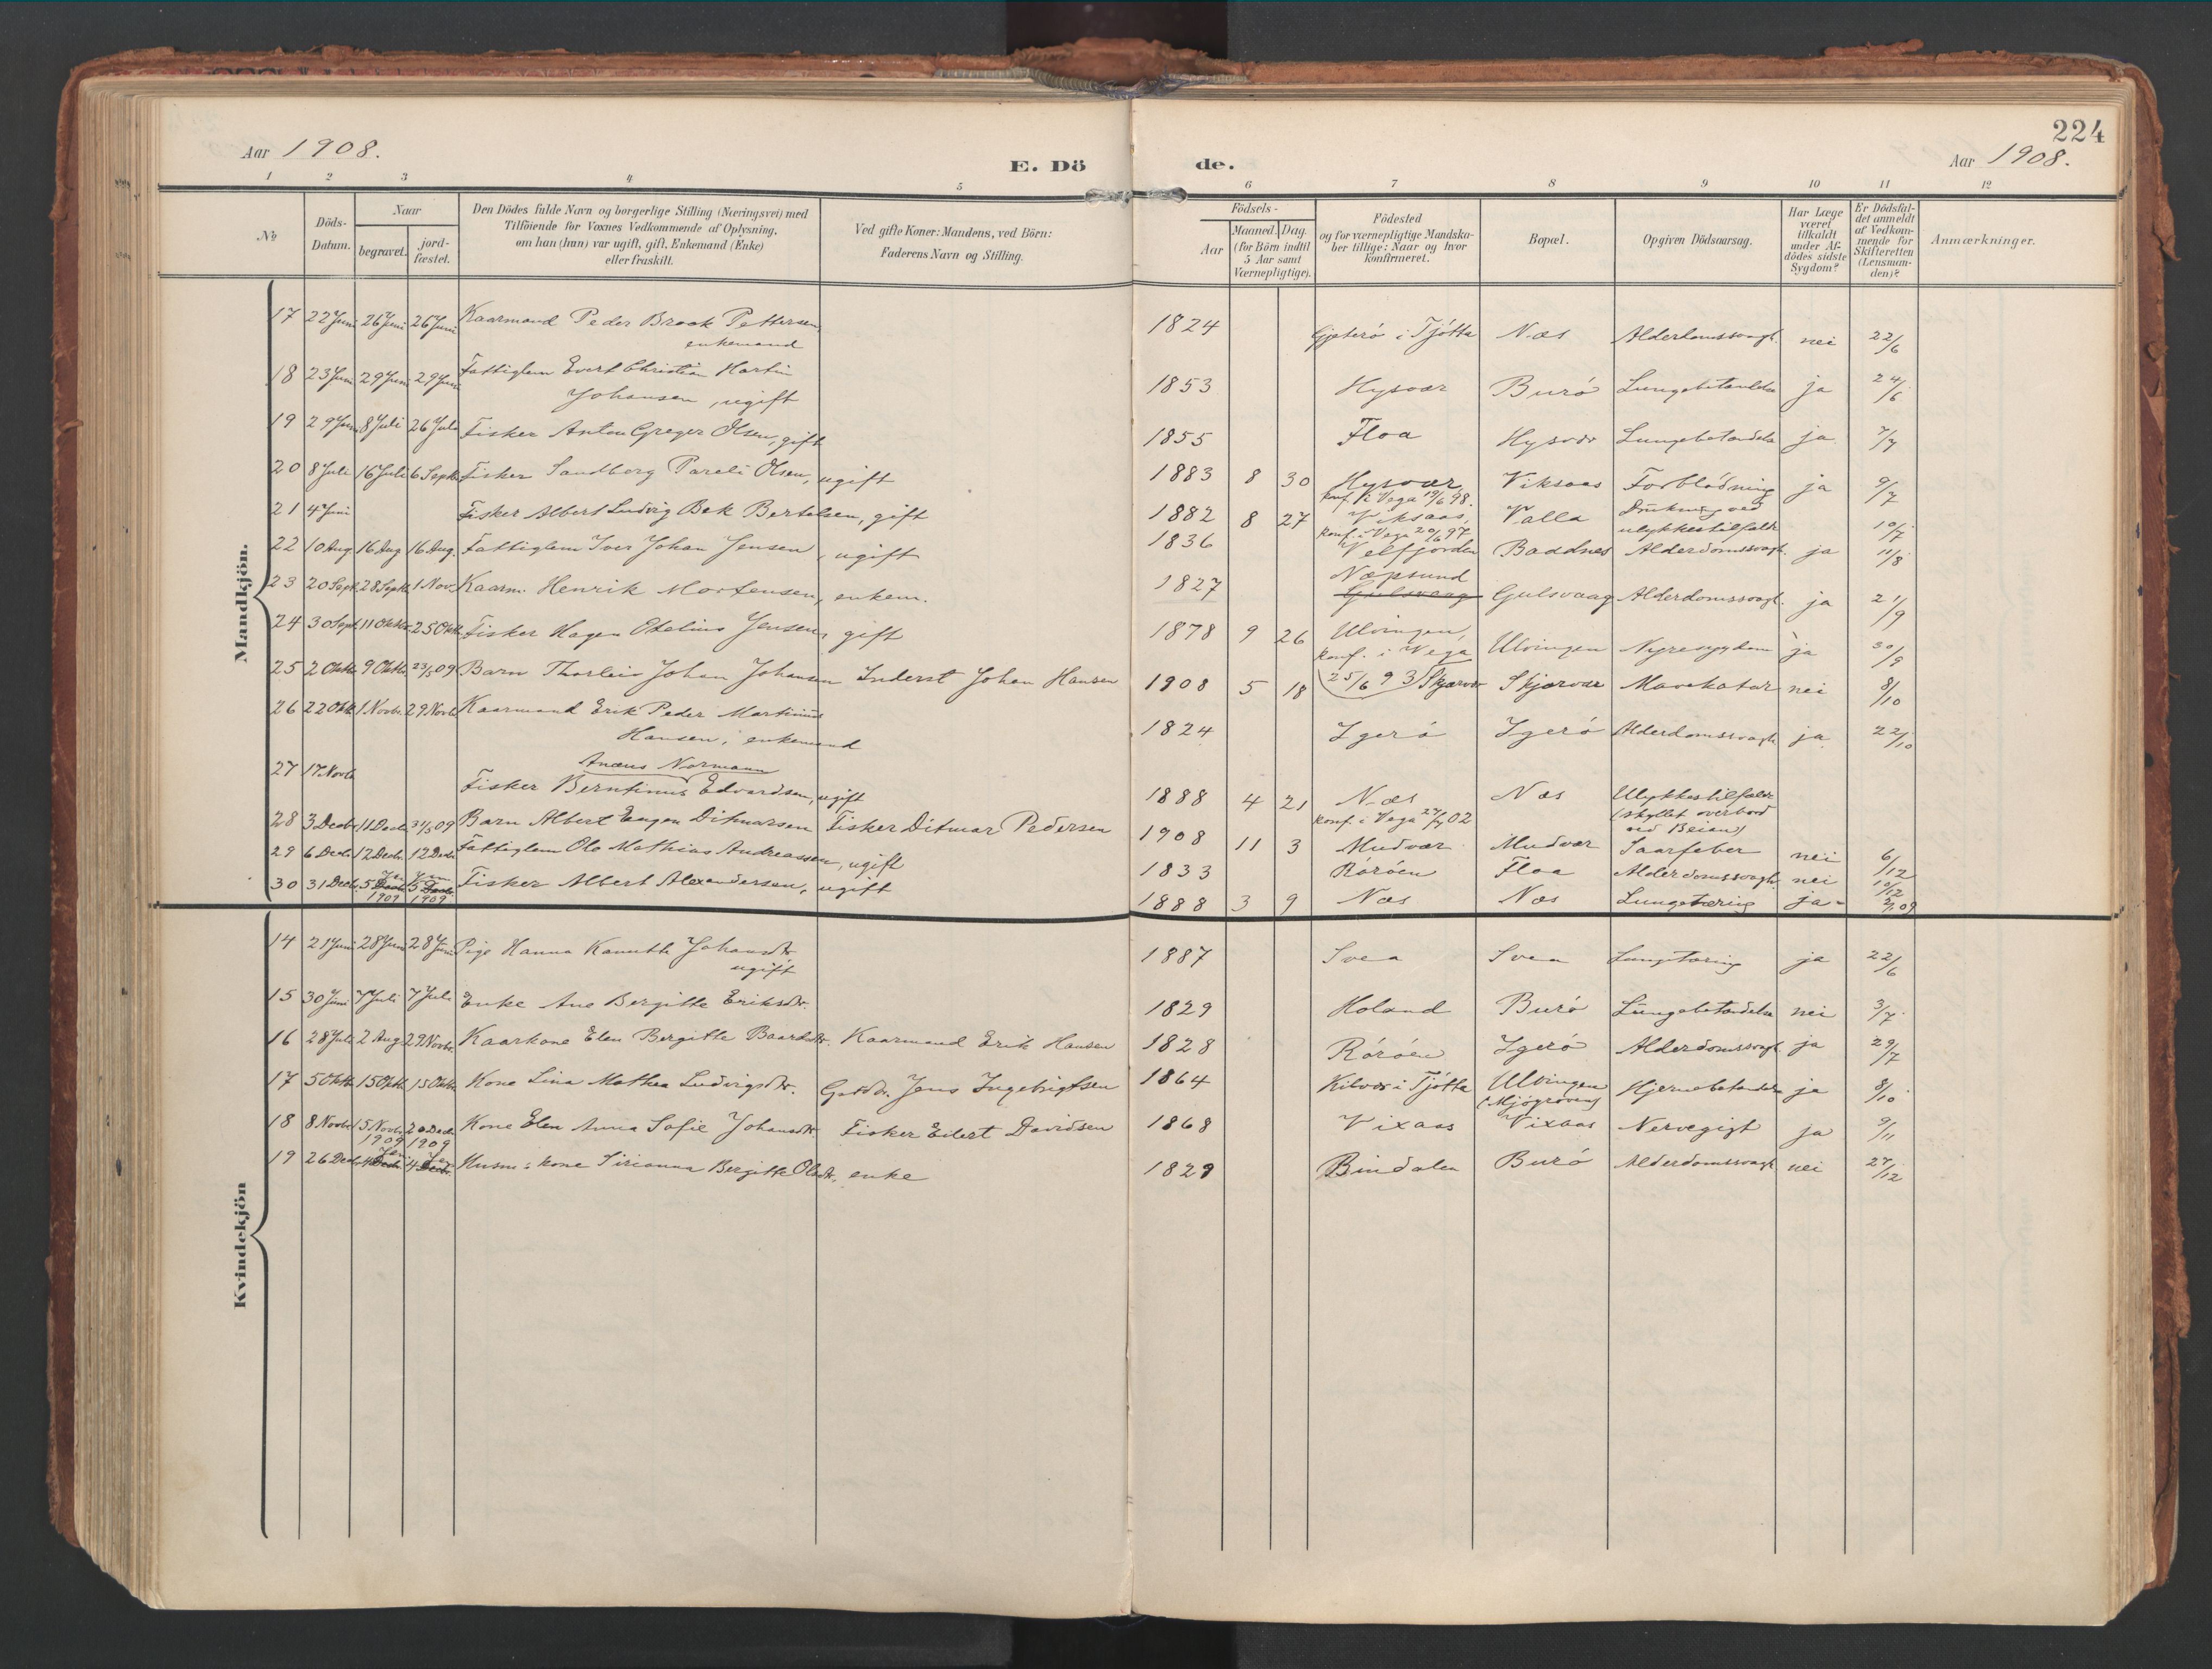 224
Aar 1908.
E. Dö de.
Aar 1908.
1 2 3 4 5 6 7 8 9 10 11 12
№
Döds-Datum.
Naar
begravet.
jord-fæstet.
Den Dödes fulde Navn og borgerlige Stilling (Næringsvei) med
Tilföiende for Voxnes Vedkommende af Oplysning,
om han (hun) var ugift, gift, Enkemand (Enke)
eller fraskilt.
Ved gifte Koner: Mandens, ved Börn:
Faderens Navn og Stilling.
Födsels-
Aar
Maaned. Dag.
(for Börn indtil
5 Aar samt
Værnepligtige).
Födested
og for værnepligtige Mandska-
ber tillige: Naar og hvor
konfirmeret.
Bopæl.
Opgiven Dödsaarsag.
Har Læge
været
tilkaldt
under Af-
dödes sidste
Sygdom?
Er Dödsfal-
det anmeldt
af Vedkom-
mende for
Skifteretten
(Lensman-
den)?
Anmærkninger.
Mandkjön.
17 22 Juni 26 Juni 26 Juni Kaarmand Peder Brook Pettersen, enkemand 1824 Gjeterö i Tjötta Næs Alderdomssvagh. nei 22/6
18 23 Juni 29 Juni 29 Juni Fattiglem Evert Christian Martin Johansen, ugift 1853 Hysvær Burö Lungebetændelse ja 24/6
19 29 Juni 8 Juli 26 Juli Fisker Anton Greger Olsen, gift 1855 Floa Hysvær Lungebetændelse ja 7/7
20 8 Juli 16 Juli 6 Septb. Fisker Sandberg Pareli Olsen, ugift 1883 8 30 Hysvær, konf. i Vega 19/6 98. Viksaas Forblödning ja 9/7
21 4 Juni Fisker Albert Ludvig Bek Bertelsen, gift 1882 8 27 Viksaas, konf. i Vega 20/6 97 Valla Drukning ved ulykkestilfælde 10/7
22 10 Aug 16 Aug 16 Aug. Fattiglem Iver Johan Jensen, ugift 1836 Velfjorden Baddnes Alderdomssvagh. ja 11/8
23 20 Septb. 28 Septb. 1 Nov. Kaarm. Henrik Mortensen, enkem. 1827 Næpsund Gulsvaag Gulsvaag Alderdomssvagh. ja 21/9
24 30 Sept. 11 Oktbr. 25 Oktb. Fisker Hagen Otelius Jensen, gift 1878 9 26 Ulvingen, konf. i Vega 25/6 93 Ulvingen Nyresygdom ja 30/9
25 2 Oktb. 9 Oktb. 23/5 09 Barn Thorleiv Johan Johansen Inderst Johan Hansen 1908 5 18 Skjærvær Skjærvær Mavekatar nei 8/10
26 22 Oktb. 1 Novbr. 29 Novb. Kaarmand Erik Peder Martinus Hansen, enkemand 1824 Igerö Igerö Alderdomssvagh. ja 22/10
27 17 Novb. Anæus Normann
Fisker Berntinus Edvardsen, ugift 1888 4 21 Næs konf. i Vega 02 Næs Ulykkestilfælde (skyllet overbord ved Beian)
28 3 Decbr. 11 Decbr. 31/5 09 Barn Albert Eugen Ditmarsen Fisker Ditmar Pedersen 1908 11 3 Mudvær Mudvær Saarfeber nei 6/12
29 6 Decb. 12 Decbr. 12 Decb. Fattiglem Ole Mathias Andreassen, ugift 1833 Röröen Floa Alderdomssvagh. nei 10/12
30 31 Decb. 5 Jan 1909 5 Jan 1909 Fisker Albert Alexandersen, ugift 1888 3 9 Næs Næs Lungetæring ja 2/1 09
Kvindekjön
14 21 Juni 28 Juni 28 Juni Pige Hanna Kanutte Johansdtr. ugift 1887 Svea Svea Lungetæring ja 22/6
15 30 Juni 7 Juli 7 Juli Enke Ane Bergitte Eriksdtr. 1829 Holand Burö Lungebetændelse nei 3/7
16 28 Juli 2 Aug 29 Novbr. Kaarkone Elen Bergitte Baardsdtr. Kaarmand Erik Hansen 1828 Röröen Igerö Alderdomssvagh. ja 29/7
17 5 Oktb. 15 Oktb. 15 Oktb. Kone Lina Mathea Ludvigsdtr. Gaardbr. Jens Ingebrigtsen 1864 Kilvær i Tjötta Ulvingen (Mjögröven) Hjernebetændelse ja 8/10
18 8 Novbr. 15 Novbr. 20 Decbr. Kone Elen Anna Sofie Johansdtr. Fisker Edert Davidsen 1868 Vixaas Vixaas Nervegigt ja 9/11
19 26 Decbr. 4 Jan 1909 4 Jan 1909 Husm: kone Sirianna Bergitte Olsdtr. enke 1829 Bindalen Burö Alderdomssvagh. nei 27/12